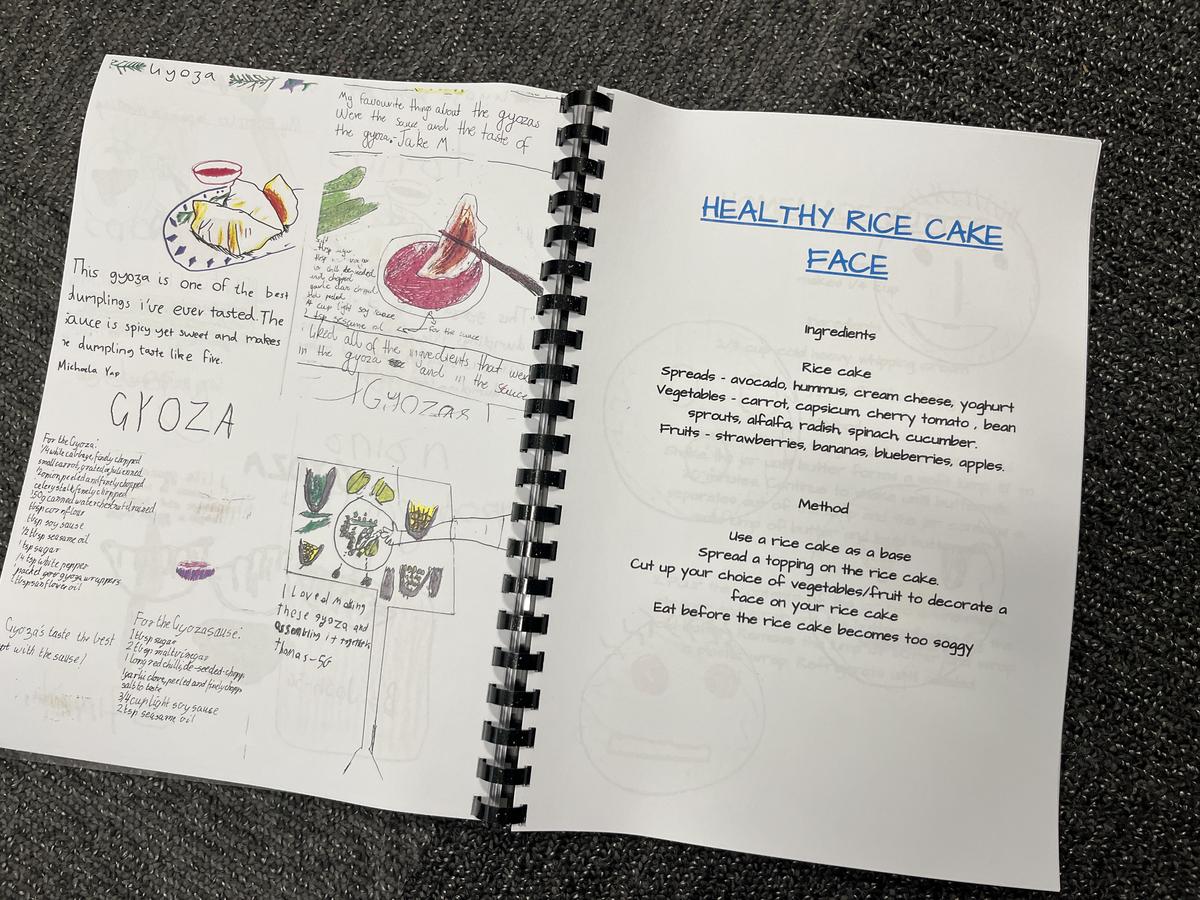 Gyoza
This gyoza is one of the best
dumplings i've ever tasted. The
sauce is spicy yet sweet and makes
dumpling taste like fire.
Michaela Yap
My favourite things about the gyozas
Were the sauce and the taste of
the gyoza.-Jake M.
sugar
chilli deseeded
chopped
garlic clove
peeled
1/4 cup light soy sauce
tsp seasame oil
for the sauce
liked all of the ingredients that were
in the gyoza and in the sauce
GYOZAS
GYOZA
For the Gyoza:
1/4 white cabbage, finely chopped
small carrot, grated or julienned
1/2 onion, peeled and finely chopped
celery stalk, finely chopped
150g canned water chestnut drained
1tbsp cornflour
1tbsp soy sause
1/2 tbsp seasame oil
1 tsp sugar
1/4 tsp white pepper
1 packet gyoza wruppers
1 tbsp sanflower oil
Gyoza's taste the best
with the sause!
For the Gyoza sause:
1 tbsp sugar
2 tbsp malt vinegar
1 long red chilli, de-seeded, chopp
garlic clove, peeled and finely chopp
salt to taste
3/4 cup light soy sause
2 tsp seasame oil
I Loved making
these gyoza and
assembling it together
thomas-5G
HEALTHY RICE CAKE
FACE
Ingredients
Rice cake
Spreads - avocado, hummus, cream cheese, yoghurt
Vegetables - carrot, capsicum, cherry tomato , bean
sprouts, alfalfa, radish, spinach, cucumber.
Fruits - strawberries, bananas, blueberries, apples.
Method
Use a rice cake as a base
Spread a topping on the rice cake.
Cut up your choice of vegetables/fruit to decorate a
face on your rice cake
Eat before the rice cake becomes too soggy